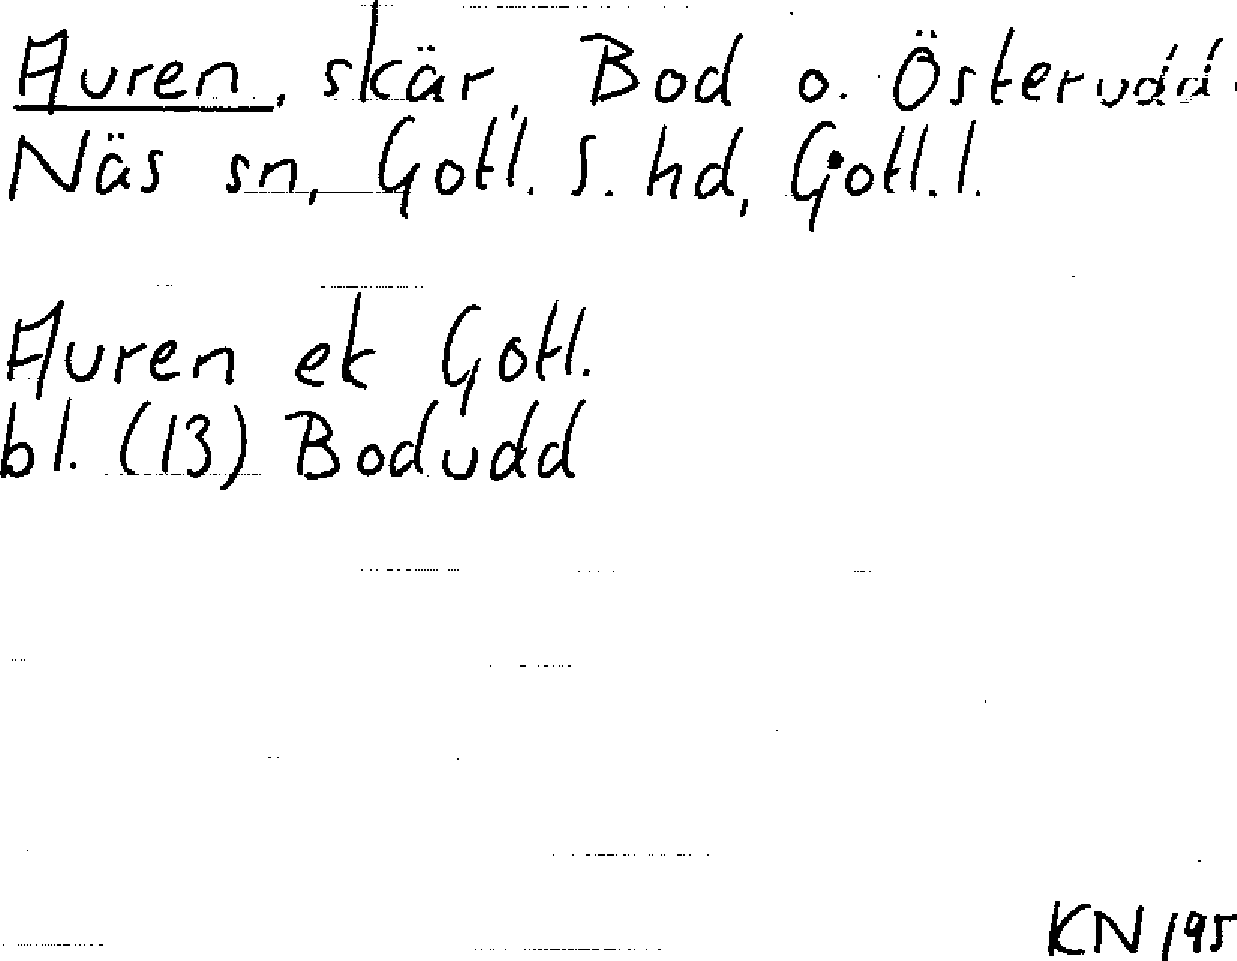 Auren, skär, Bod o. Österudd.
Näs sn, Gotl. S. hd, Gotl. l.
Auren ek Gotl.
bl. (13) Bodudd
KN 195